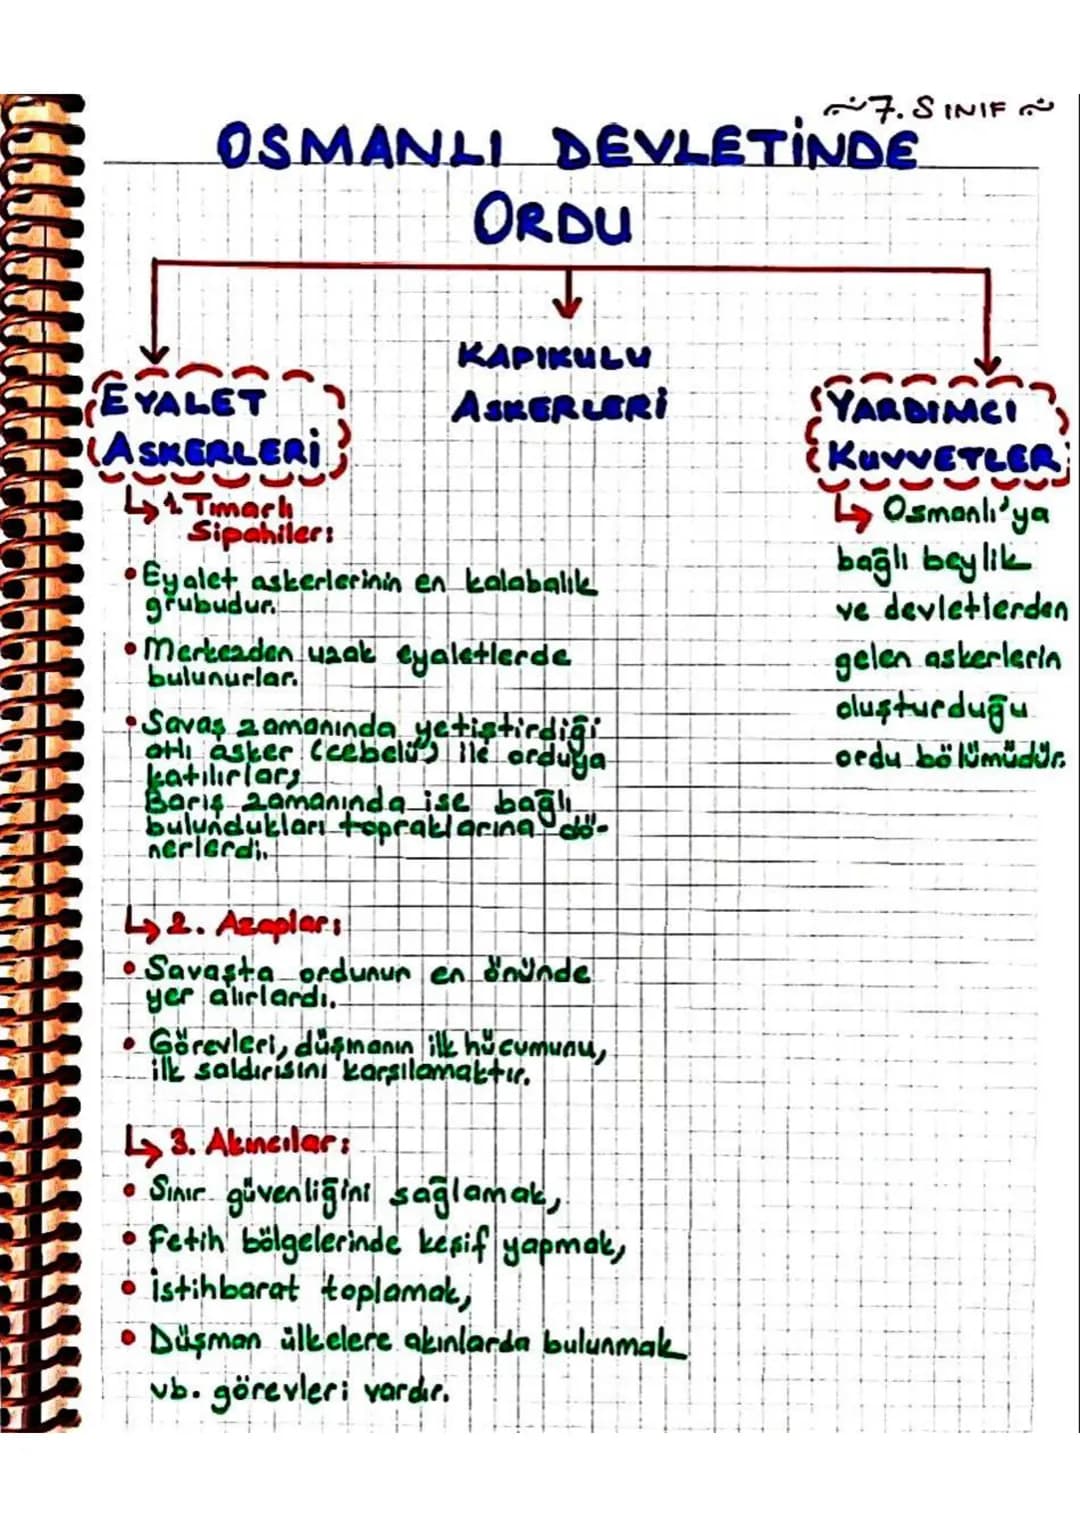 ~7. SINIF~
OSMANLI DEVLETİNDE
ORDU
EYALET
ASKERLERİ
↳ 1. Tımarlı
Sipahiler:
• Eyalet askerlerinin en kalabalık
grubudur.
• Merkezden uzak eyaletlerde
bulunurlar.
• Savaş zamanında yetiştirdiği
atlı asker (cebelü) ile orduya
katılırlar;
Barış zamanında ise bağlı
bulundukları topraklarına dö-
nerlerdi.
↳ 2. Azaplar:
• Savaşta ordunun en önünde
yer alırlardı.
• Görevleri, düşmanın ilk hücumunu,
ilk saldırısını karşılamaktır.
↳ 3. Akıncılar:
• Sınır güvenliğini sağlamak,
• Fetih bölgelerinde keşif yapmak,
• İstihbarat toplamak,
• Düşman ülkelere akınlarda bulunmak
vb. görevleri vardır.
KAPIKULU
ASKERLERİ
YARDIMCI
KUVVETLER
↳ Osmanlı'ya
bağlı beylik
ve devletlerden
gelen askerlerin
oluşturduğu
ordu bölümüdür.